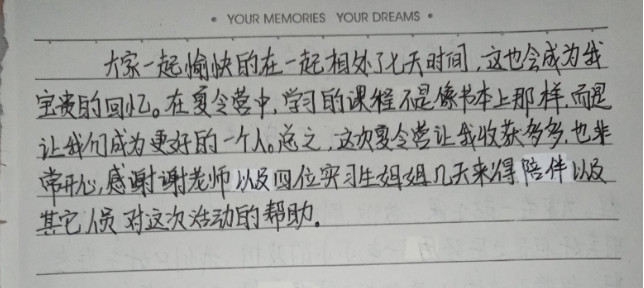 • YOUR MEMORIES YOUR DREAMS •
大家一起愉快的在一起相处了七天时间，这也会成为我
宝贵的回忆。在夏令营中，学习的课程不是像书本上那样，而是
让我们成为更好的一个人。总之，这次夏令营让我收获多多，也非
常开心，感谢谢老师以及四位实习生姐姐几天来得陪伴以及
其它人员对这次活动的帮助。